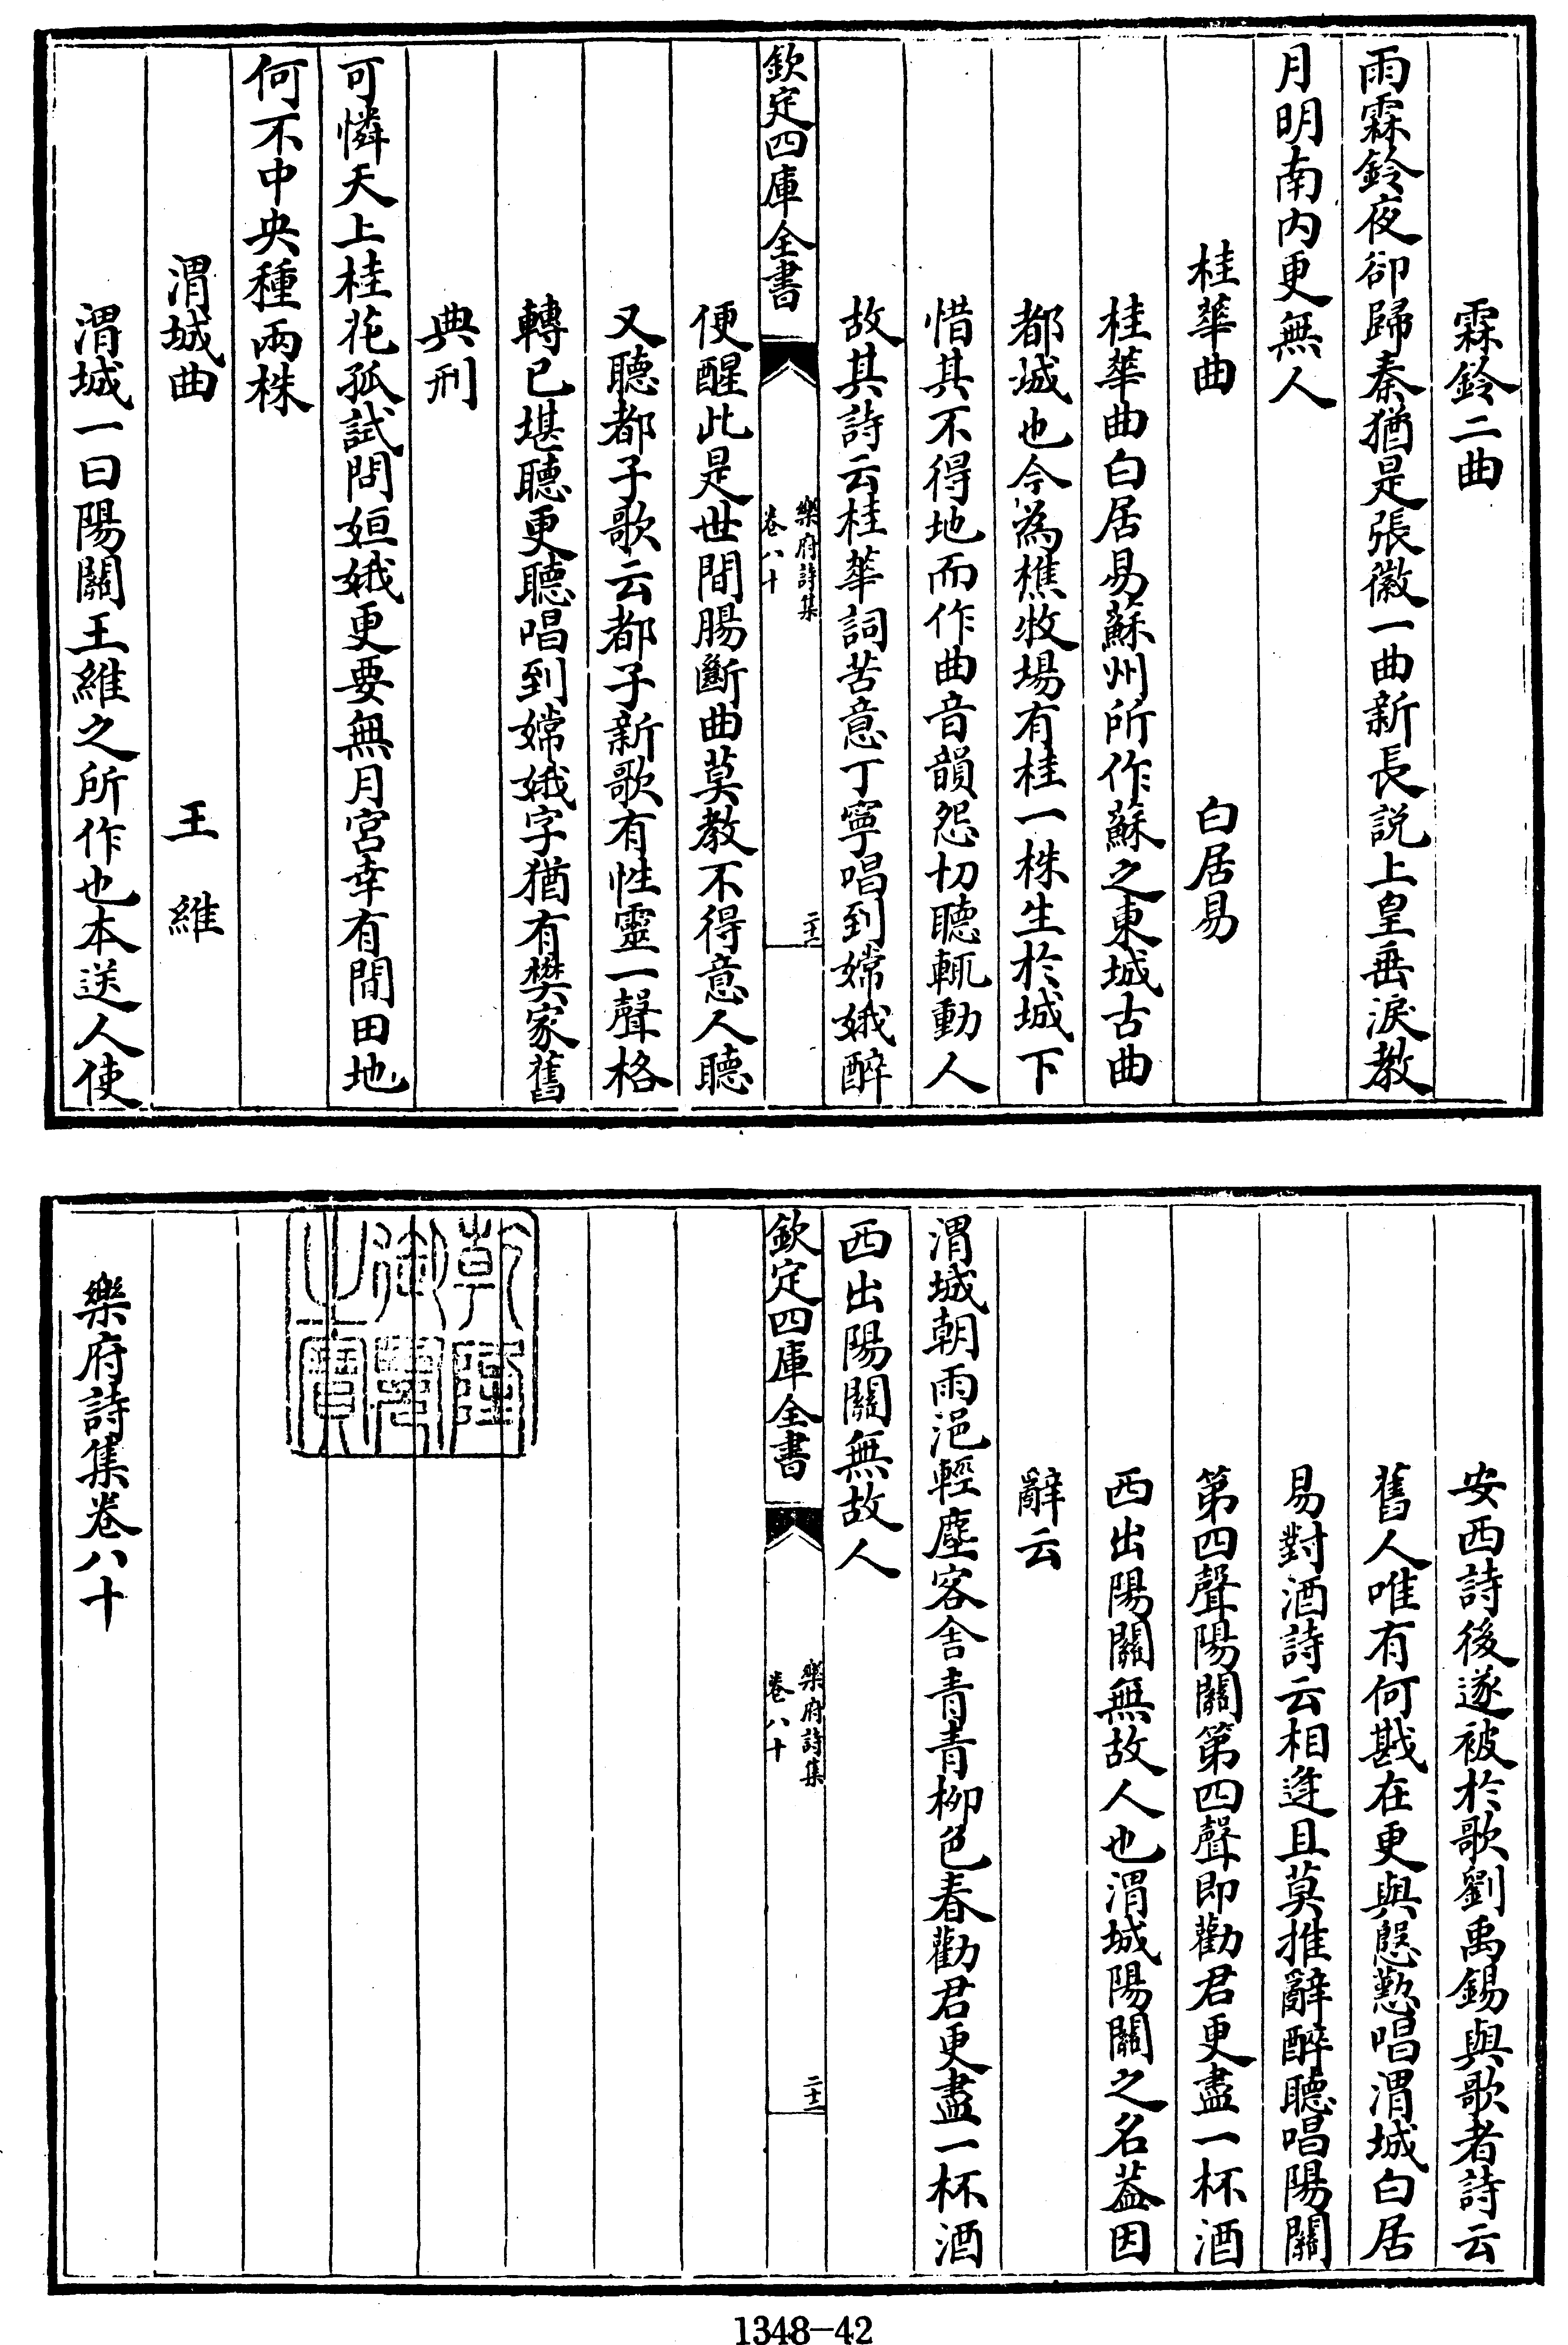 霖鈴二曲
雨霖鈴夜卻歸秦猶是張徽一曲新長説上皇垂淚教
月明南内更無人
桂華曲 白居易
桂華曲白居易蘇州所作蘇之東城古曲
都城也今為樵牧場有桂一株生於城下
惜其不得地而作曲音韻怨切聽輒動人
故其詩云桂華詞苦意丁寧唱到嫦娥醉
欽定四庫全書
樂府詩集
卷八十
二十一
便醒此是世間腸斷曲莫教不得意人聽
又聽都子歌云都子新歌有性靈一聲格
轉已堪聽更聽唱到嫦娥字猶有樊家舊
典刑
可憐天上桂花孤試問姮娥更要無月宮幸有閒田地
何不中央種兩株
渭城曲 王維
渭城一曰陽關王維之所作也本送人使
安西詩後遂被於歌劉禹錫與歌者詩云
舊人唯有何戡在更與慇懃唱渭城白居
易對酒詩云相逢且莫推辭醉聽唱陽關
第四聲陽關第四聲即勸君更盡一杯酒
西出陽關無故人也渭城陽關之名葢因
辭云
渭城朝雨浥輕塵客舎青青栁色春勸君更盡一杯酒
西出陽關無故人
欽定四庫全書
樂府詩集
卷八十
二十二
乾隆御覽之寶
樂府詩集卷八十
1348-42